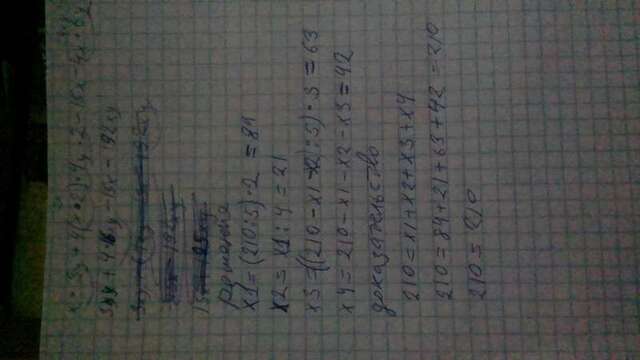 x · 3y + 4(x · 2) · 4y · 2 - 15x - 4x · 6y
3xy + 4 · 16y - 15x - 192xy
192xy
192xy
решения
x1 = (210 : 5) · 2 = 84
x2 = x1 : 4 = 21
x3 = ((210 - x1 - x2) : 5) · 3 = 63
x4 = 210 - x1 - x2 - x3 = 42
доказательство
210 = x1 + x2 + x3 + x4
210 = 84 + 21 + 63 + 42 = 210
210 = 210